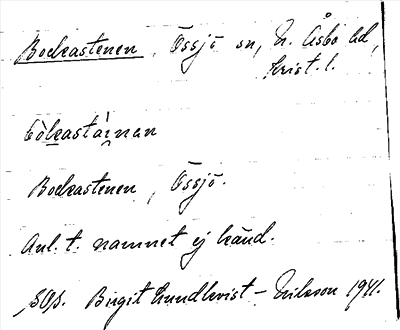 Bockastenen, Össjö sn, N. Åsbo hd,
Krist. l.
bòkastáinan
Bockastenen, Össjö.
Anl. t. namnet ej känd.
Birgit Lundkvist - Nilsson 1941.